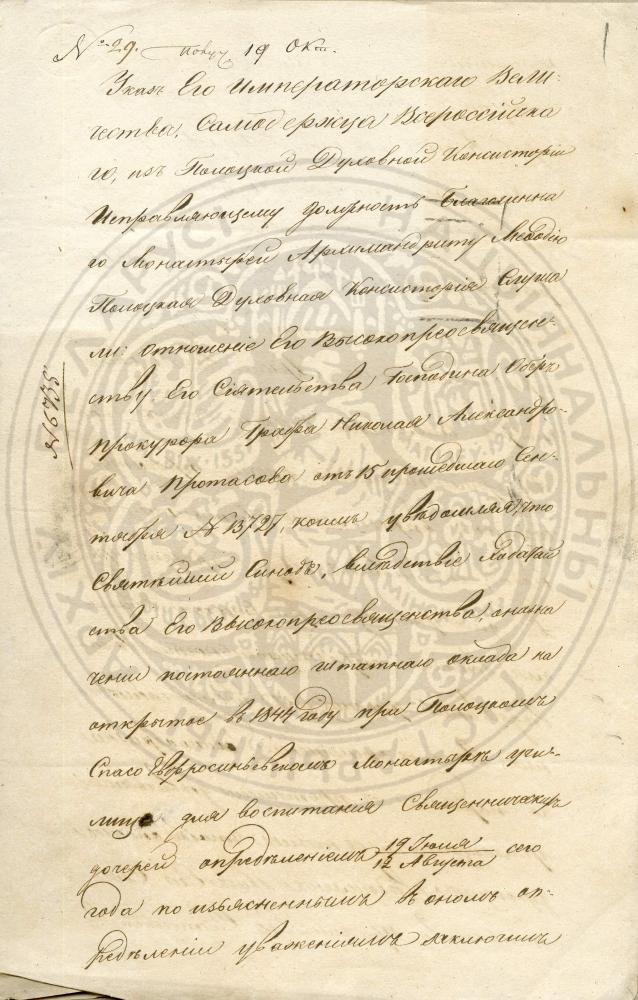 № 29. Получ. 19 Окт.
1
Указъ Его Императорскаго Вели-
чества, Самодержца Всероссійска
го, изъ Полоцкой Духовной Консисторіи
Исправляющему должность Благочинна
го Монастырей Архимандриту Меѳодію
Полоцкая Духовная Консисторія Слуша
ли: отношеніе Его Высокопреосвящен-
ству Его Сіятельства Господина Оберъ
Прокурора Графа Николая Александро-
вича Протасова отъ 15 прошедшаго Сен-
тября № 13727, коимъ увѣдомляя, что
Святѣйшій Синодъ, вслѣдствіе Хадатай
ства Его Высокопреосвященства, о назна
ченіи постояннаго штатнаго оклада на
открытое въ 1844 году при Полоцкомъ
Спасо Евфросиньевскомъ Монастырѣ учи-
лище для воспитанія Священническихъ
дочерей опредѣленіемъ 19 Іюля / 12 Августа сего
года по изъясненнымъ въ ономъ оп-
редѣленіи уваженіямъ заключилъ
№ 6735